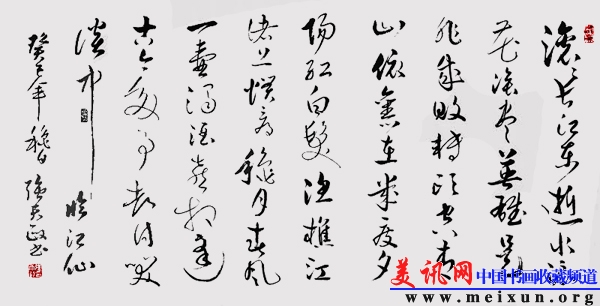 滚滚长江东逝水浪
花淘尽英雄是
非成败转头空青
山依旧在几度夕
阳红白髮渔樵江
渚上惯看秋月春风
一壶浊酒喜相逢
古今多少事都付笑
谈中 临江仙
癸巳年
美讯网 中国书画收藏频道
www.meixun.org